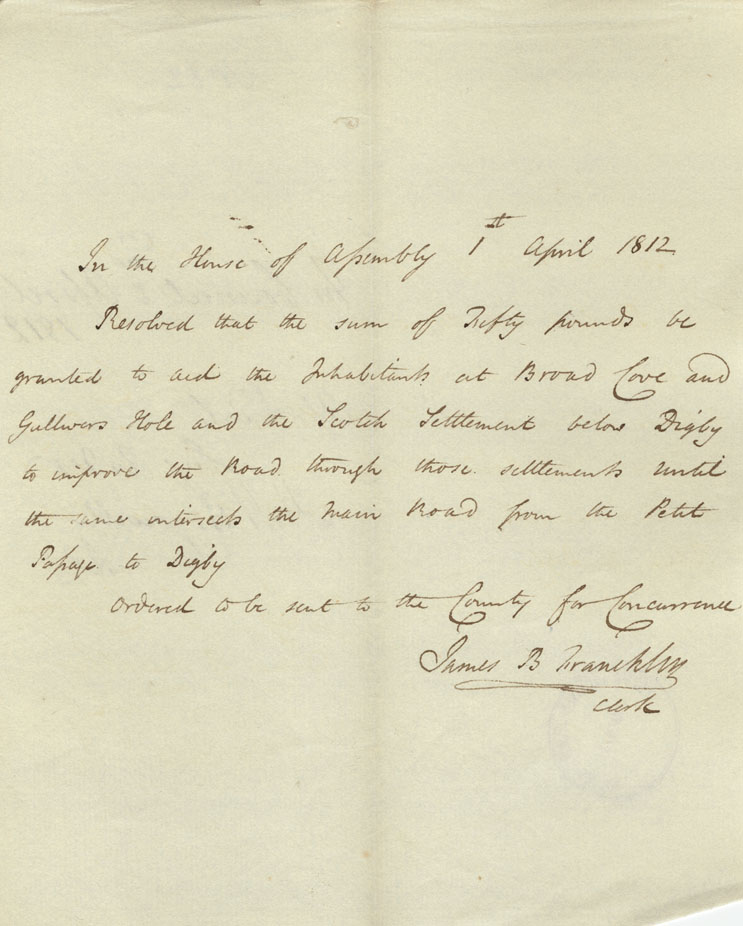 In the House of Assembly 1st April 1812
Resolved that the sum of Fifty pounds be
granted to aid the Inhabitants at Broad Cove and
Gullivers Hole and the Scotch Settlement below Digby
to improve the Road through those settlements until
the same intersects the Main Road from the Petit
Passage to Digby
Ordered to be sent to the County for Concurrence
James B Franchlin
Clerk